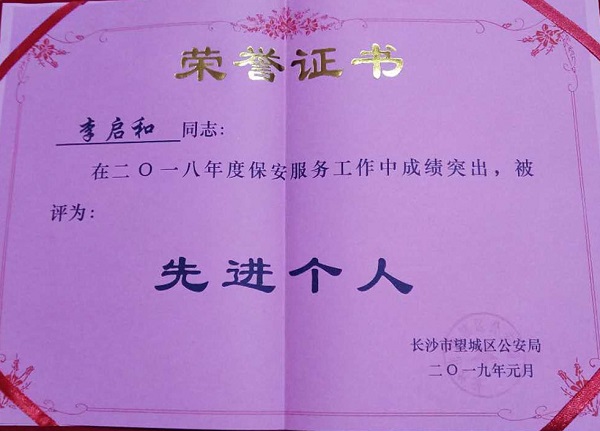 荣誉证书
李启和 同志:
在二〇一八年度保安服务工作中成绩突出,被
评为:
先进个人
长沙市望城区公安局
二〇一九年元月